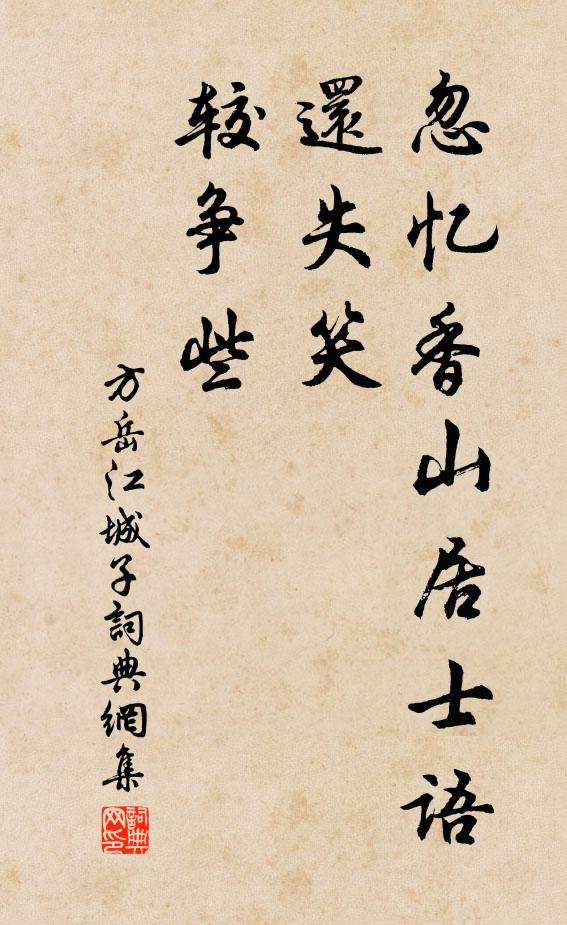 忽忆香山居士语
還失笑
较争些
方岳江城子詞典網集
詞典
网印